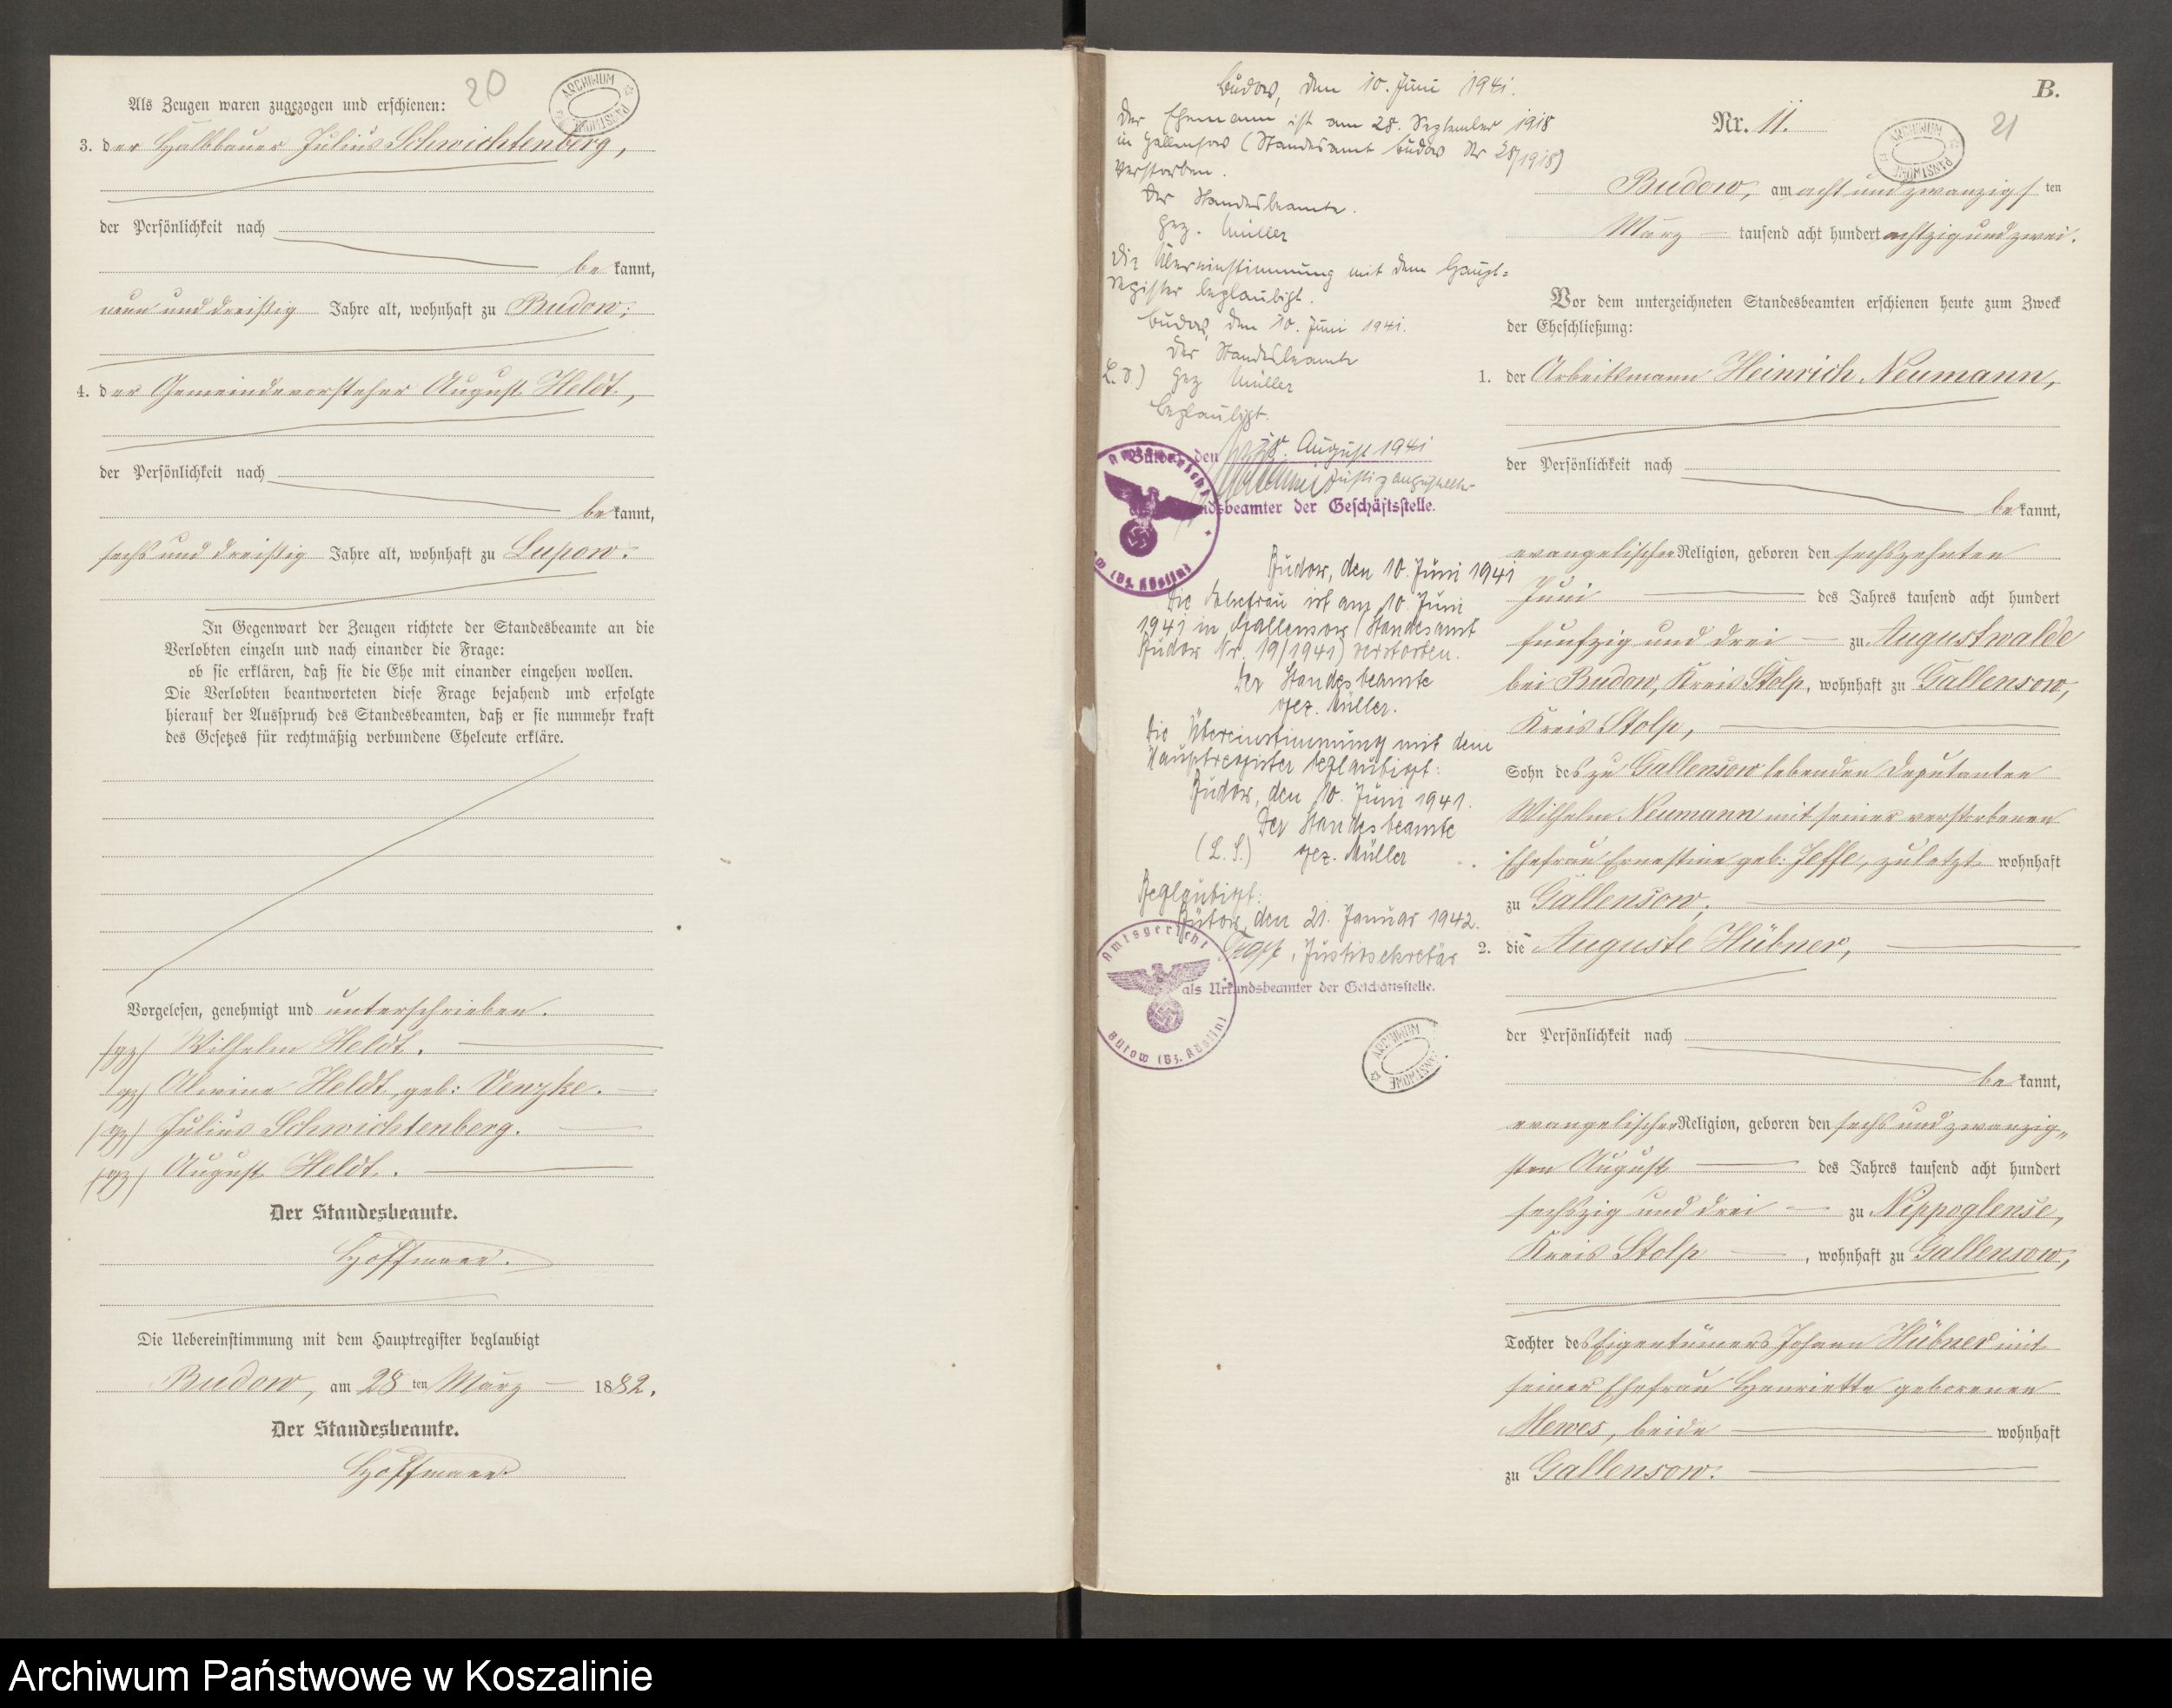 20
ARCHIWUM PAŃSTWOWE
Als Zeugen waren zugezogen und erschienen:
3. der Halbbauer Julius Schwichtenberg,
der Persönlichkeit nach
be kannt,
neun und dreißig Jahre alt, wohnhaft zu Budow;
4. der Gemeindevorsteher August Heldt,
der Persönlichkeit nach
be kannt,
sechs und dreißig Jahre alt, wohnhaft zu Lupow.
In Gegenwart der Zeugen richtete der Standesbeamte an die
Verlobten einzeln und nach einander die Frage:
ob sie erklären, daß sie die Ehe mit einander eingehen wollen.
Die Verlobten beantworteten diese Frage bejahend und erfolgte
hierauf der Ausspruch des Standesbeamten, daß er sie nunmehr kraft
des Gesetzes für rechtmäßig verbundene Eheleute erkläre.
Vorgelesen, genehmigt und unterschrieben.
(gz) Wilhelm Heldt.
(gz) Alwine Heldt, geb: Venzke.
(gz) Julius Schwichtenberg.
(gz) August Heldt.
Der Standesbeamte.
Hoffmann.
Die Uebereinstimmung mit dem Hauptregister beglaubigt
Budow, am 28 ten März 1882.
Der Standesbeamte.
Hoffmann
Budow, den 10. Juni 1941.
Der Ehemann ist am 28. September 1918
in Gallensow (Standesamt Budow Nr 28/1918)
verstorben.
Der Standesbeamte.
gez. Müller
Die Übereinstimmung mit dem Haupt=
register beglaubigt.
Budow, den 10. Juni 1941.
Der Standesbeamte
(L.S.) gez Müller
Beglaubigt.
Bütow, den 28. August 1941
Justizangestellter
als Urkundsbeamter der Geschäftsstelle.
Amtsgericht Bütow (Bz. Köslin)
Budow, den 10. Juni 1941
Die Ehefrau ist am 10. Juni
1941 in Gallensow (Standesamt
Budow Nr. 19/1941) verstorben.
Der Standesbeamte
gez. Müller.
Die Übereinstimmung mit dem
Hauptregister beglaubigt:
Budow, den 10. Juni 1941.
Der Standesbeamte
(L.S.) gez. Müller
Beglaubigt:
Bütow, den 21. Januar 1942.
Justizsekretär
als Urkundsbeamter der Geschäftsstelle.
Amtsgericht Bütow (Bz. Köslin)
ARCHIWUM PAŃSTWOWE
B.
Nr. 11.
21
ARCHIWUM PAŃSTWOWE
Budow, am acht und zwanzigs ten
März tausend acht hundert achtzig und zwei.
Vor dem unterzeichneten Standesbeamten erschienen heute zum Zweck
der Eheschließung:
1. der Arbeitsmann Heinrich Neumann,
der Persönlichkeit nach
be kannt,
evangelischer Religion, geboren den sechszehnten
Juni des Jahres tausend acht hundert
fünfzig und drei zu Augustwalde
bei Budow, Kreis Stolp, wohnhaft zu Gallensow,
Kreis Stolp,
Sohn des zu Gallensow lebenden Deputanten
Wilhelm Neumann mit seiner verstorbenen
Ehefrau Ernestine geb: Jeffe, zuletzt wohnhaft
zu Gallensow;
2. die Auguste Hübner,
der Persönlichkeit nach
be kannt,
evangelischer Religion, geboren den sechs und zwanzig"
sten August des Jahres tausend acht hundert
sechszig und drei zu Nippoglense,
Kreis Stolp, wohnhaft zu Gallensow,
Tochter des Eigentümers Johann Hübner mit
seiner Ehefrau Henriette geborenen
Mewes, beide wohnhaft
zu Gallensow.
Archiwum Państwowe w Koszalinie